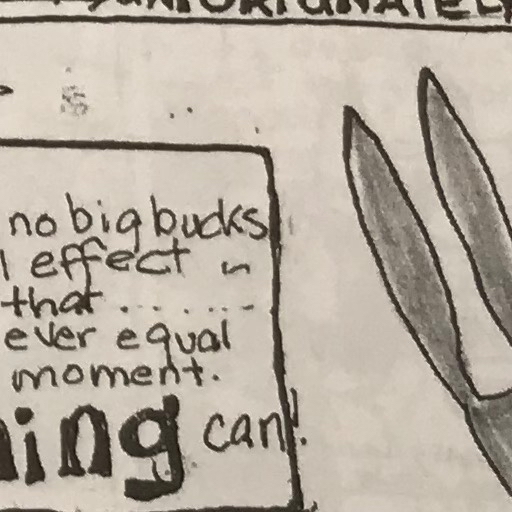 UNFORTUNATEL
no big bucks
effect in
that . . . . . . .
ever equal
moment.
ing can!